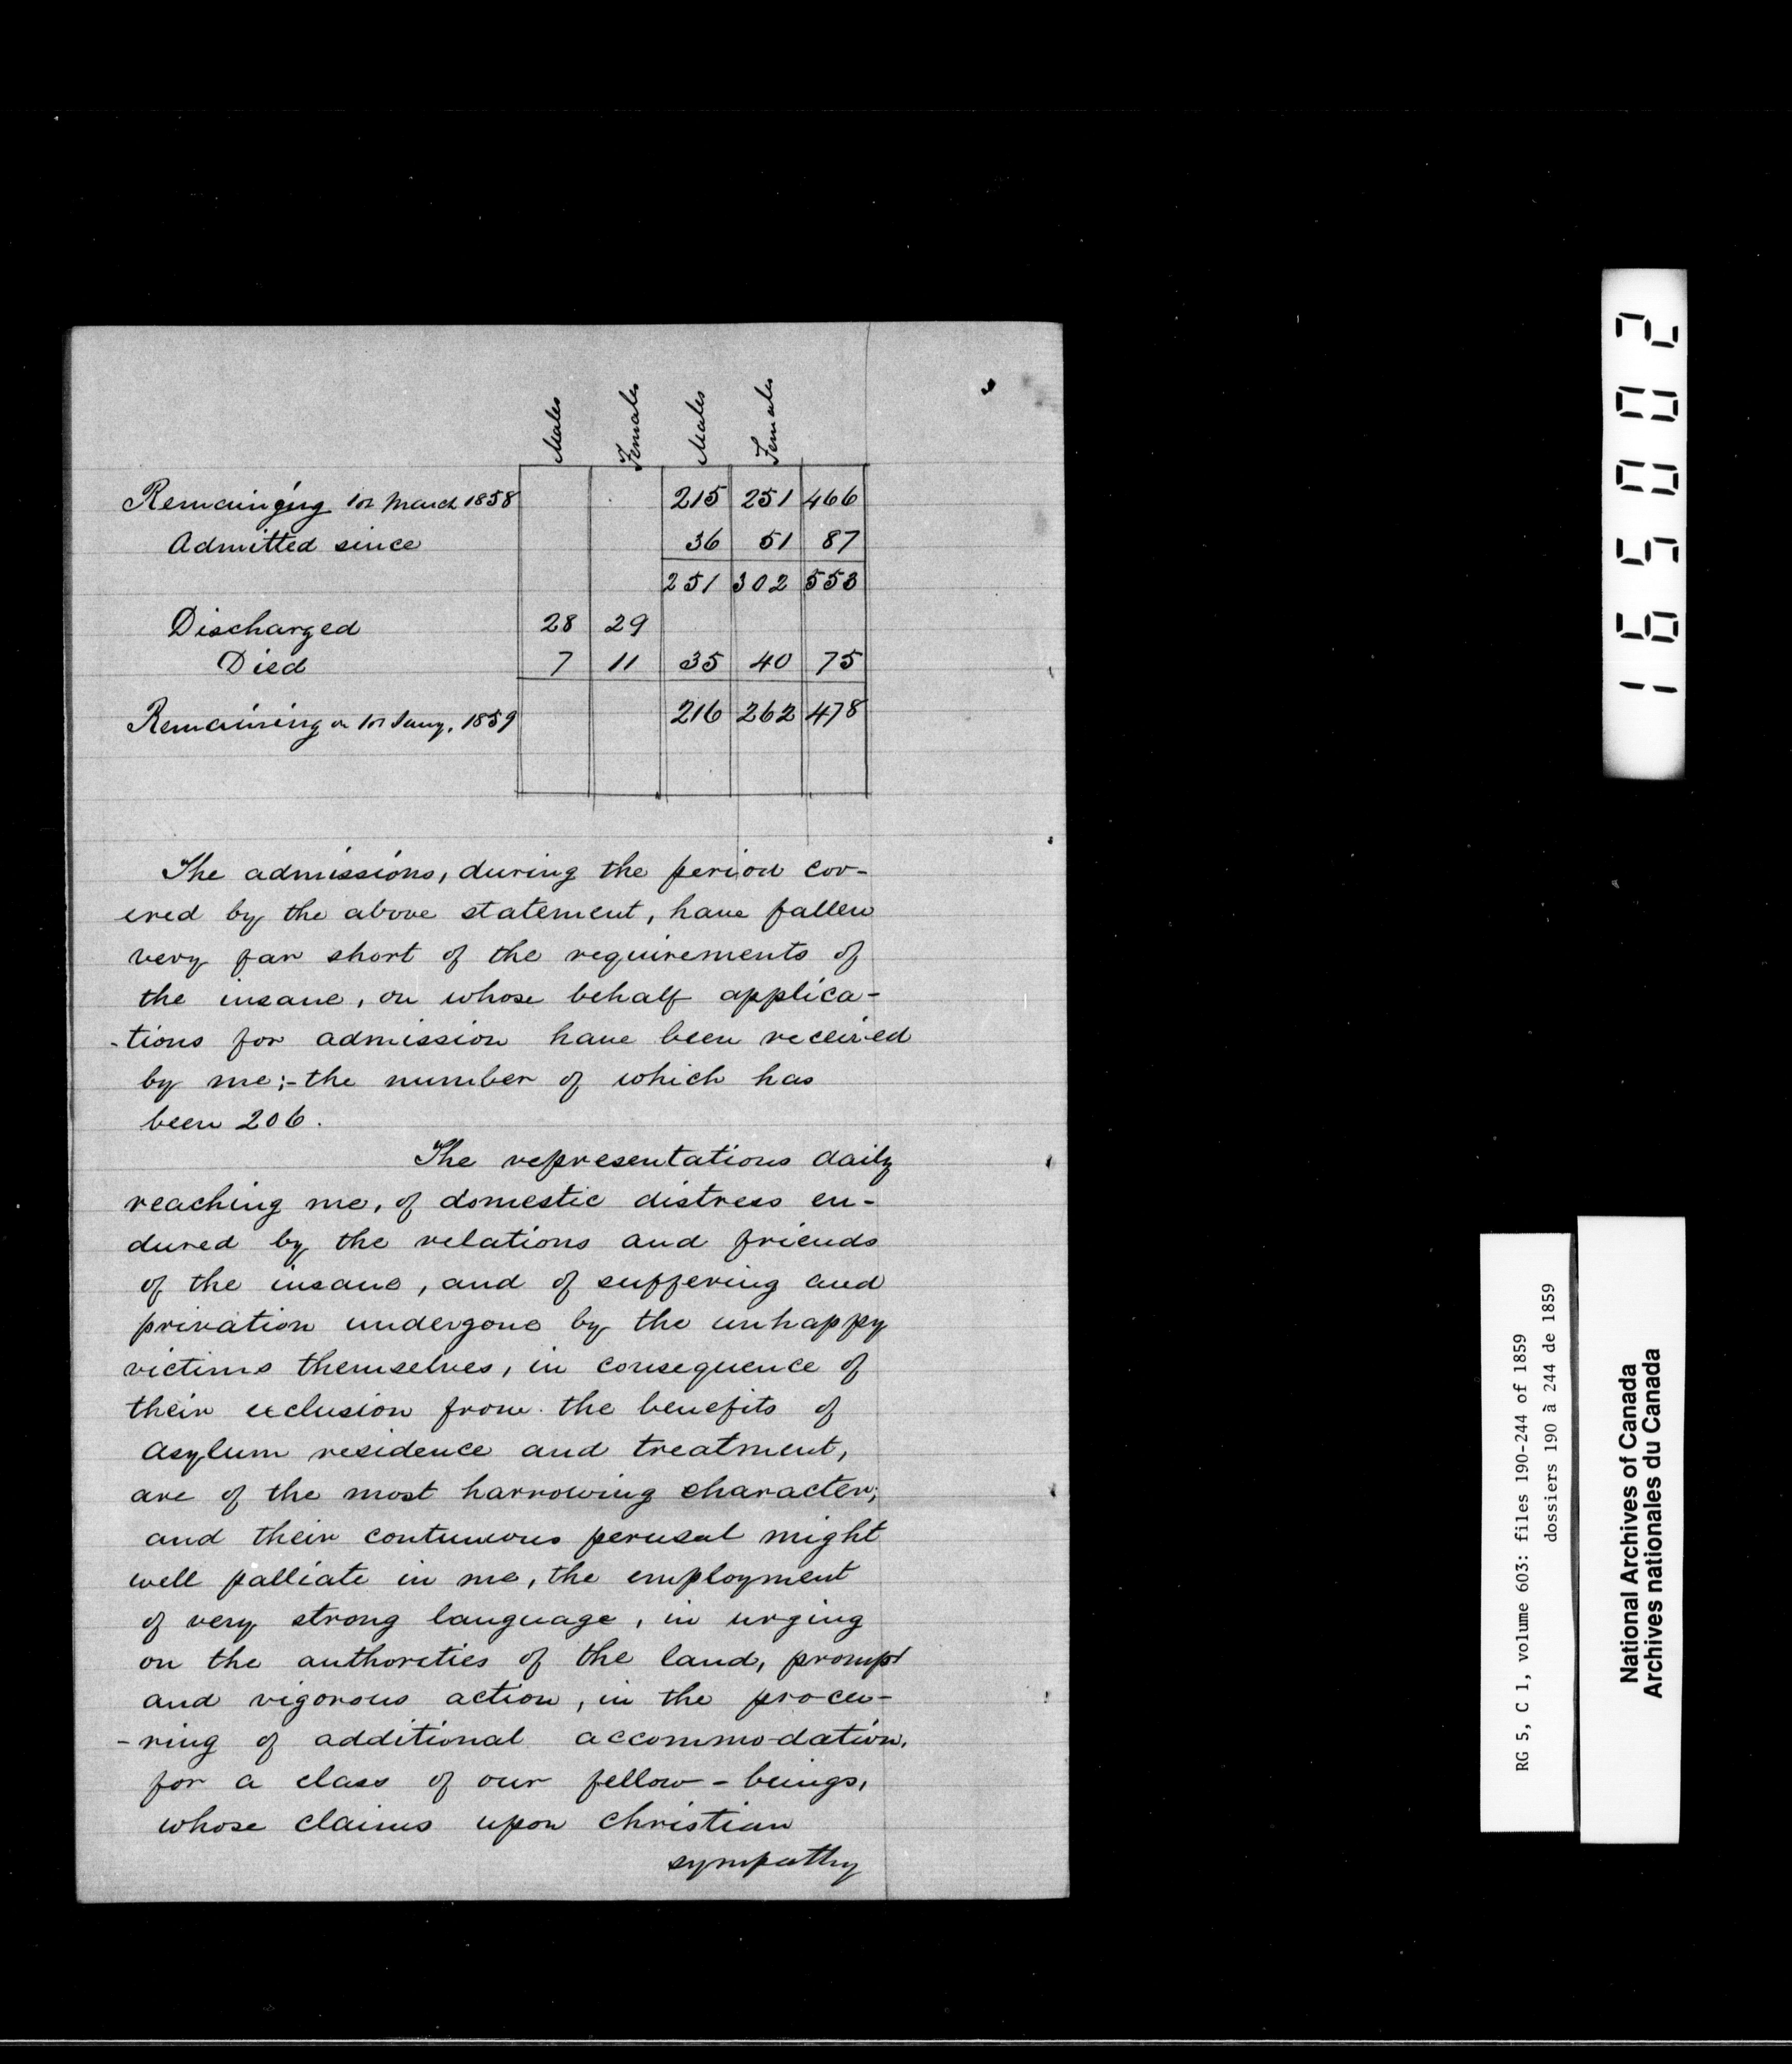 Males Females Males Females
Remaining 1st March 1858 215 251 466
Admitted since 36 51 87
251 302 553
Discharged 28 29
Died 7 11 35 40 75
Remaining on 1st Jany, 1859 216 262 478
The admissions, during the period cov-
ered by the above statement, have fallen
very far short of the requirements of
the insane, on whose behalf applica-
-tions for admission have been received
by me;- the number of which has
been 206.
The representations daily
reaching me, of domestic distress en-
dured by the relations and friends
of the insane, and of suffering and
privation undergone by the unhappy
victims themselves, in consequence of
their exclusion from the benefits of
asylum residence and treatment,
are of the most harrowing character;
and their continuous perusal might
well palliate in me, the employment
of very strong language, in urging
on the authorities of the land, prompt
and vigorous action, in the procu-
-ring of additional accommodation,
for a class of our fellow-beings,
whose claims upon christian
sympathy
165002
RG 5, C 1, volume 603: files 190-244 of 1859
dossiers 190 à 244 de 1859
National Archives of Canada
Archives nationales du Canada